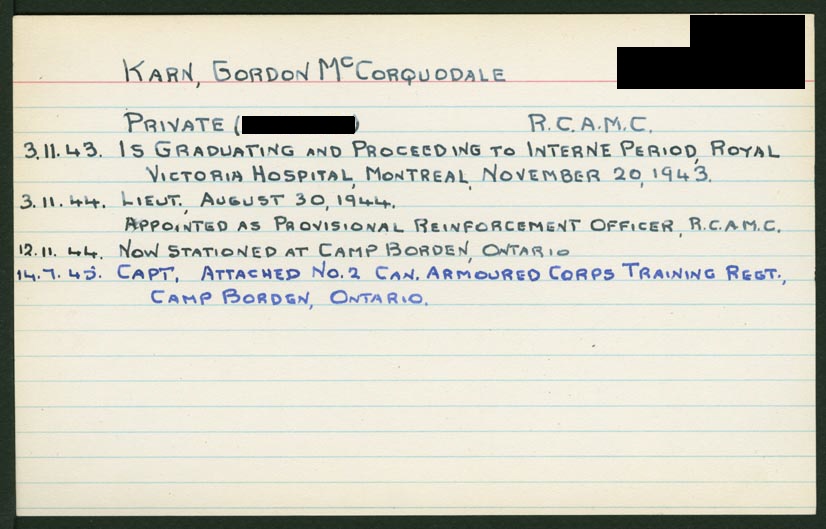 KARN, GORDON McCORQUODALE
PRIVATE ( ) R.C.A.M.C.
3.11.43. IS GRADUATING AND PROCEEDING TO INTERNE PERIOD, ROYAL
VICTORIA HOSPITAL, MONTREAL, NOVEMBER 20, 1943.
3.11.44. LIEUT, AUGUST 30, 1944.
APPOINTED AS PROVISIONAL REINFORCEMENT OFFICER, R.C.A.M.C.
12.11.44. NOW STATIONED AT CAMP BORDEN, ONTARIO
14.7.45. CAPT, ATTACHED NO.2 CAN. ARMOURED CORPS TRAINING REGT.,
CAMP BORDEN, ONTARIO.